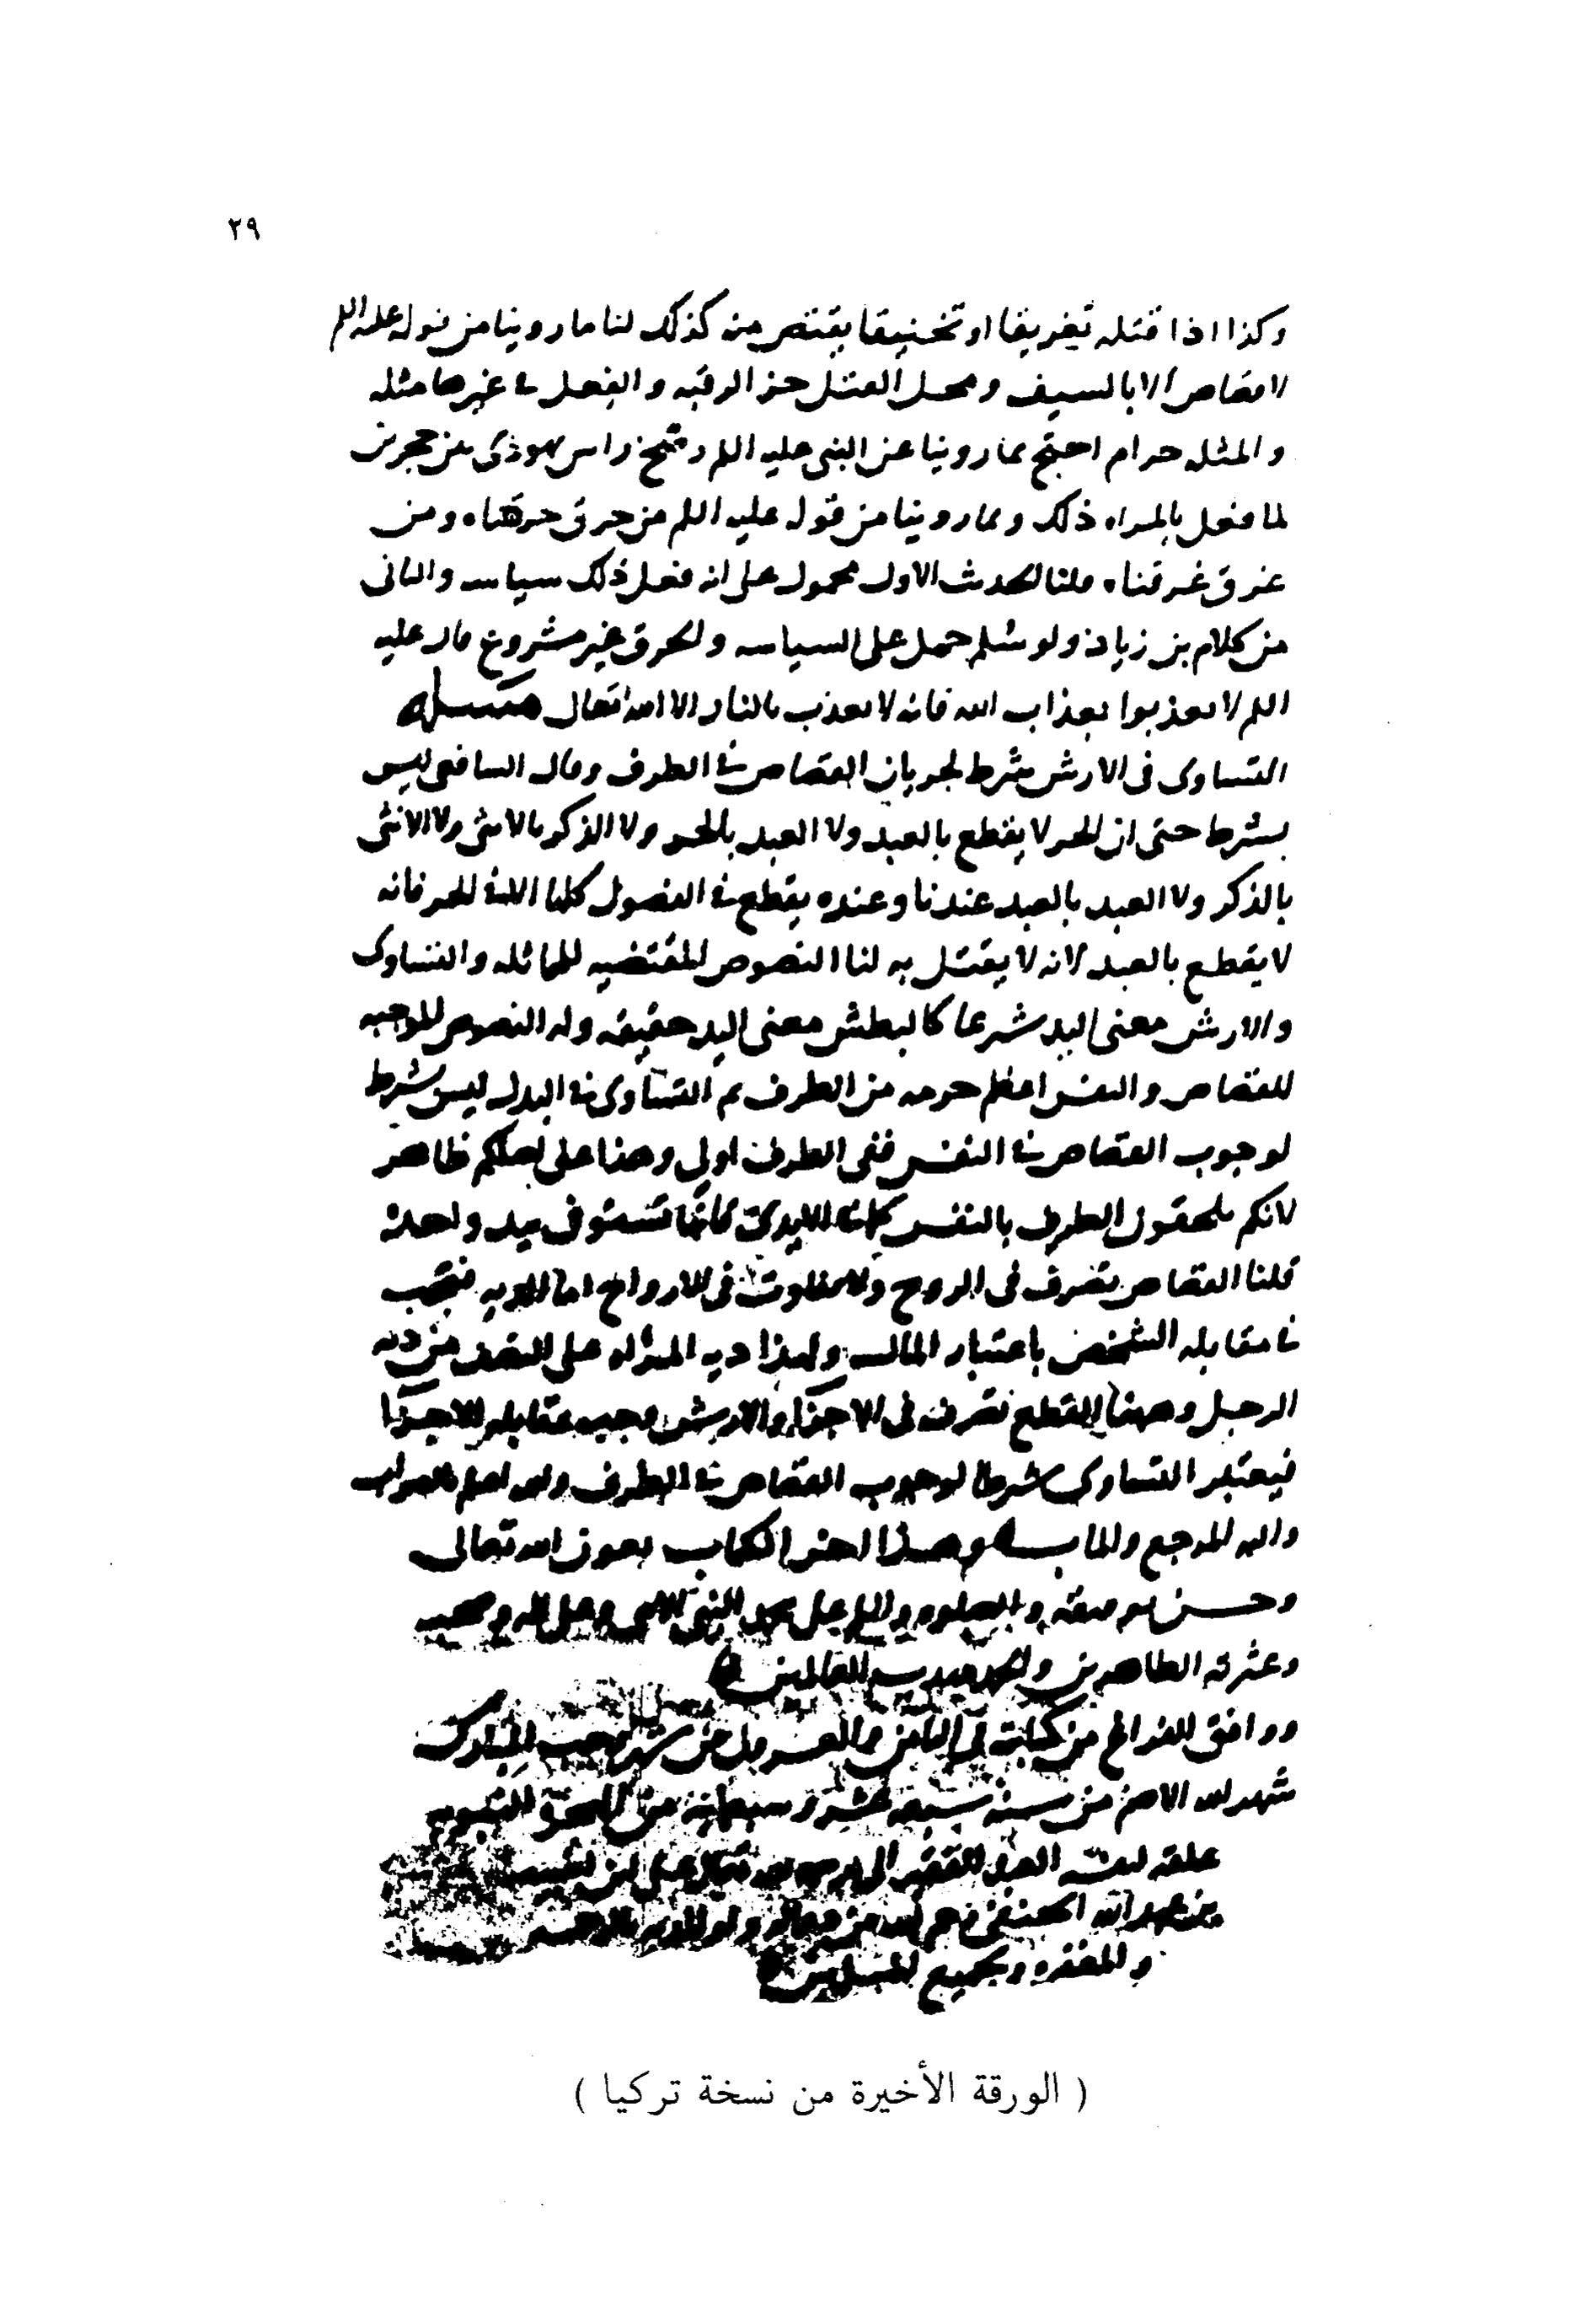 ٢٩
وكذا اذا قتله تغريقا او تخنيقا يقتص منه كذلك لنا ما روينا من قوله عليه السلم
لا قصاص الا بالسيف ومحل القتل حز الرقبه والفعل في غيرها مثله
والمثله حرام احتج بما روينا عن النبي عليه السلم رضخ راس يهودي بين حجرين
لما فعل بالمراه ذلك وبما روينا من قوله عليه السلم من حرق حرقناه ومن
غرق غرقناه قلنا الحديث الاول محمول على انه فعل ذلك سياسه والثاني
من كلام بن زياد ولو سلم حمل على السياسه والحرق غير مشروع قال عليه
السلم لا تعذبوا بعذاب الله فانه لا يعذب بالنار الا الله تعالى مسله
التساوي في الارش شرط لجريان القصاص في الطرف وقال الشافعي ليس
بشرط حتى ان الحر لا يقطع بالعبد ولا العبد بالحر ولا الذكر بالانثى ولا الانثى
بالذكر ولا العبد بالعبد عندنا وعنده يقطع في الفصول كلها الا في الحر فانه
لا يقطع بالعبد لانه لا يقتل به لنا النصوص المقتضيه للمماثله والتساوي
والارش معنى اليد شرعا كالبطش معنى اليد حقيقه وله النصوص الموجبه
للقصاص والنفس اعظم حرمه من الطرف ثم التساوي في البدل ليس شرط
لوجوب القصاص في النفس ففي الطرف اولى وهذا على اصلكم ظاهر
لانكم تلحقون الطرف بالنفس كانها تستوفى بيد واحدة
قلنا القصاص تصرف في الروح ولا تفاوت في الارواح اما الديه فتجب
في مقابله الشخص باعتبار الماليه ولهذا ديه المراه على النصف من ديه
الرجل وههنا القطع تصرف في الاجزا والارش وجب بمقابله الاجزا
فيعتبر التساوي شرطا لوجوب القصاص في الطرف والله اعلم بالصواب
واليه المرجع والماب وهذا اخر الكتاب بعون الله تعالى
وحسن توفيقه والصلوه والسلم على محمد النبي الامي وعلى اله وصحبه
وعترته الطاهرين والحمد لله رب العالمين
ووافق الفراغ من كتابته في الثامن والعشرين من شهر رجب المبارك
شهر الله الاصم من سنة سبعة عشر وسبعمايه من الهجرة النبويه
علقه لنفسه العبد الفقير الى الله تعالى علي بن
بن عبد الله الحنفي ولوالديه
والمغفره ولجميع المسلمين
( الورقة الأخيرة من نسخة تركيا )